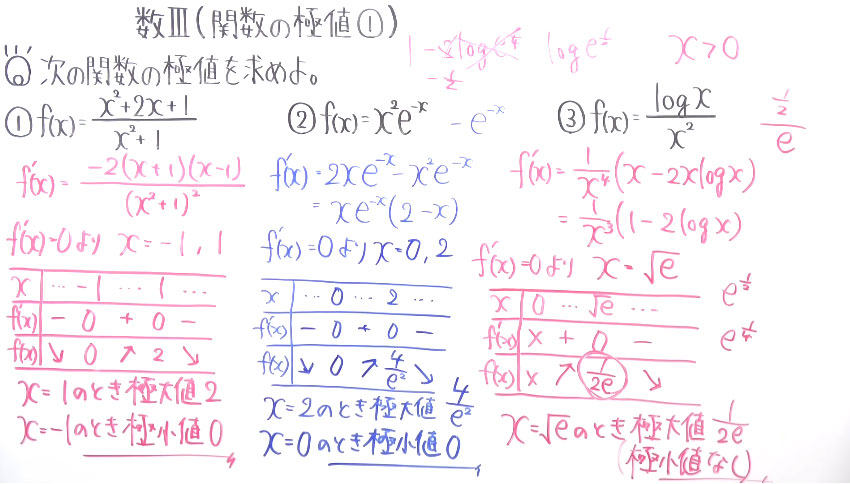 数Ⅲ(関数の極値①)
次の関数の極値を求めよ。
① f(x)=(x²+2x+1)/(x²+1)
f'(x)=(-2(x+1)(x-1))/(x²+1)²
f'(x)=0より x=-1,1
x … -1 … 1 …
f'(x) - 0 + 0 -
f(x) ↘ 0 ↗ 2 ↘
x=1のとき極大値2
x=-1のとき極小値0
② f(x)=x²e^-x
-e^-x
f'(x)=2xe^-x-x²e^-x
=xe^-x(2-x)
f'(x)=0より x=0,2
x … 0 … 2 …
f'(x) - 0 + 0 -
f(x) ↘ 0 ↗ 4/e² ↘
x=2のとき極大値 4/e²
x=0のとき極小値0
log e^½
x>0
③ f(x)=log x/x²
½/e
f'(x)=1/x⁴(x-2x log x)
=1/x³(1-2log x)
f'(x)=0より x=√e
e^½
x 0 … √e …
f'(x) × + 0 -
f(x) × ↗ 1/2e ↘
x=√eのとき極大値 1/2e
(極小値なし)